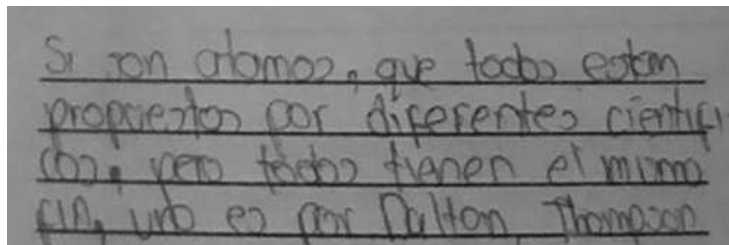 Si son atomos, que todos estan
propuestos por diferentes cientifi
cos, pero todos tienen el mismo
fin, uno es por Dalton, Thompson